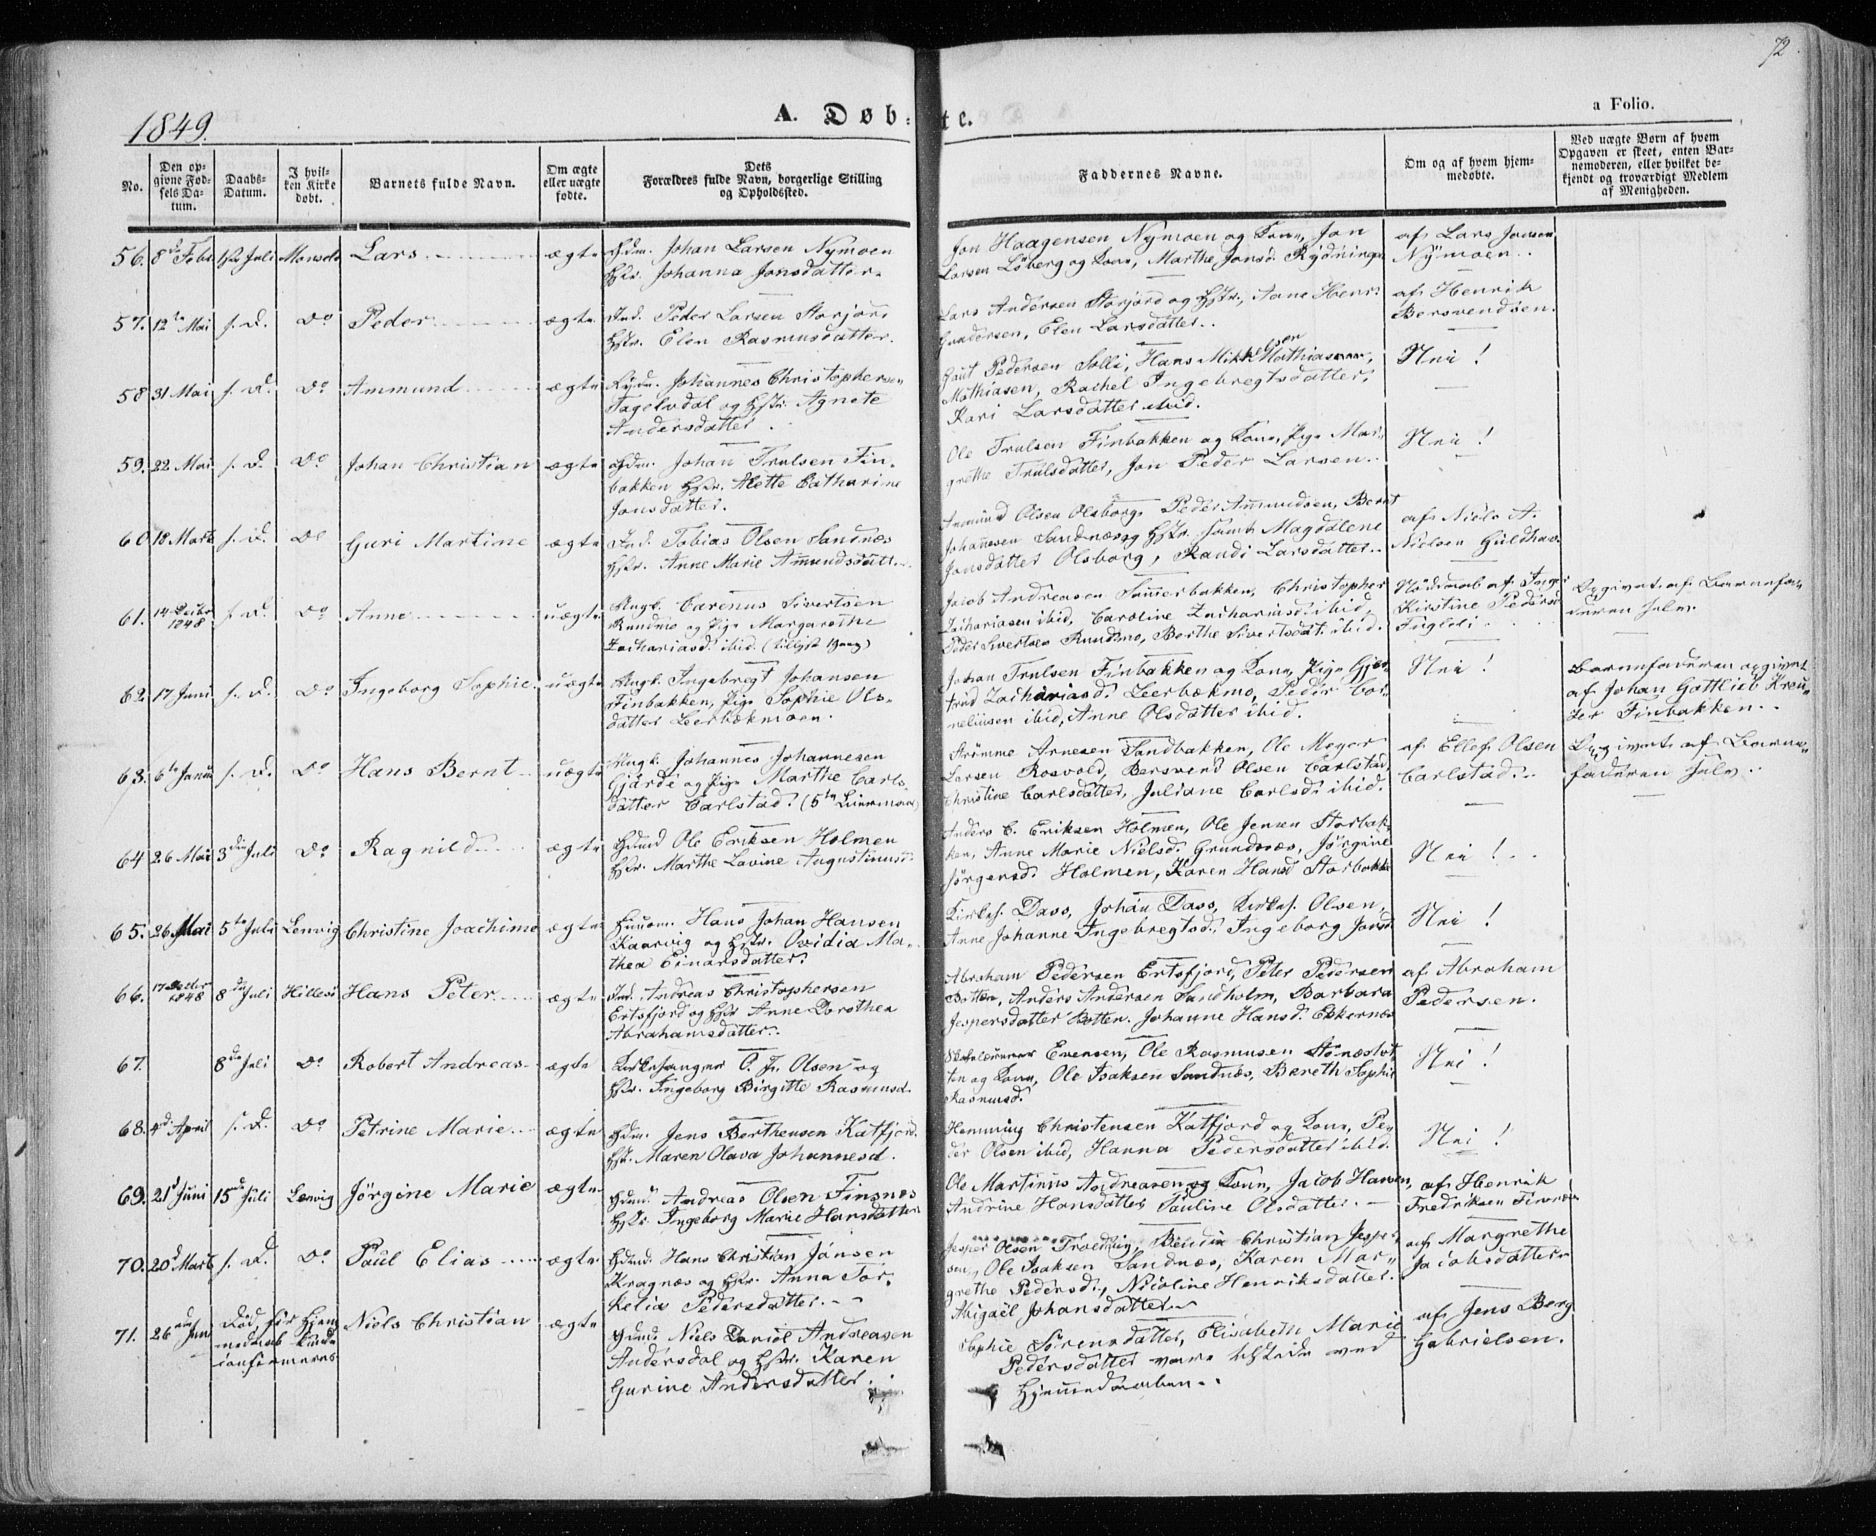 72.
1849.
A. Døb-
te.
a Folio.
No.
Den op-
givne Fød-
sels Da-
tum.
Daabs-
Datum.
I hvil-
ken Kirke
døbt.
Barnets fulde Navn.
Om ægte
eller uægte
fødte.
Dets
Forældres fulde Navn, borgerlige Stilling
og Opholdssted.
Faddernes Navne.
Om og af hvem hjem-
medøbte.
Ved uægte Børn af hvem
Opgaven er skeet, enten Bar-
nemoderen, eller hvilket be-
kjendt og troværdigt Medlem
af Menigheden.
56. 8de Febr Juli Lars ægte Gdm. Johan Larsen Nymoen
Hstr. Johanna Jonsdatter.
Jon Haagensen Nymoen og Kone, Jon
Larsen Løberg og Kone, Marthe Jonsd. Rydningen
af Lars Jonsen
Nymoen.
57. 12te Mai s. D. Do Peder ægte Ind. Peder Larsen Storjord
Hstr. Elen Rasmusdatter.
Lars Andersen Storjord og Hstr., Anne
Elen Larsdatter.
af Henrik
Bersvendsen.
58 31 Mai s. D. Do Ammund ægte Johannes Christophersen
Fagelvdal og Hstr. Agnete
Andersdatter.
Pedersen Solli, Hans Mikkelsen
Mathiasen, Rachel Ingebregtsdatter,
Kari Larsdatter ibid.
Nei!
59. 22 Mai s. D. Do Johan Christian ægte Gdm. Johan Trulsen Fin-
bakken Hstr. Mette Catharine
Jonsdatter.
Ole Trulsen Finbakken og Kone, Pige Mar-
grethe Trulsdatter, Jon Peder Larsen.
Nei!
60 18 Marts s. D. Do Guri Martine ægte Ind. Tobias Olsen Sandnæs
Hstr. Anne Marie Amundsdatt.
Ammund Olsen Olsborg, Peder Ammundsen, Bernt
Johannesen Sandnæs og Hstr. samt Magdalene
Jonsdatter Olsborg, Randi Larsdatter.
af Niels A.
Nielsen Guldhav
61. 14 Decbr
1848 s. D. Do Anne uægte Ungk. Carenus Sivertsen
Rundmo og Pige Margarethe
Zachariasd. ibid. (
Jacob Andreasen Sommerbakken, Christopher
Zachariasen ibid, Caroline Zachariasd. ibid,
Peder Sivertsen Rundmo, Berthe Sivertsdat. ibid.
Nøddaab af Inger
Kirstine Pedersd
Fugleli
Opgivet af Barnefa-
deren selv.
62. 17 Juni s. D. Do Ingeborg Sophie uægte Ungk. Ingebregt Johansen
Finbakken, Pige Sophie Ols-
datter Leerbækmoen.
Johan Trulsen Finbakken og Kone, Pige Gjer-
trud Zachariasd. Leerbækmo, Peder Cor-
neliusen ibid, Anne Olsdatter ibid.
Nei!
Barnefaderen opgivet
af Johan Gottlieb Kreu-
tzer Finbakken.
63. 6te Januar s. D. Do Hans Bernt uægte Ungk. Johannes Johannesen
Gjærdi og Pige Marthe Carls-
datter Carlstad. (5te Leiermaal)
Strømme Arnesen Sandbakken, Ole Meyer
Larsen Rosvold, Bersvend Olsen Carlstad,
Christine Carlsdatter, Juliane Carlsd. ibid.
af Ellef Olsen
Carlstad.
Opgivet af Barne-
faderen selv.
64 26 Mai 3die Juli Do Ragnild ægte Gdmd Ole Eriksen Holmen
Hstr. Marthe Lavine Augustinusd.
Anders C. Eriksen Holmen, Ole Jensen Storbak-
ken, Anne Marie Nielsd. Grundnæs, Jørgine
Jørgensd. Holmen, Karen Hansd Storbakken
Nei!
65. 26 Mai 5te Juli Lenvig Christine Joachime ægte Huusm. Hans Johan Hansen
Kaarvig og Hstr. Ovidia Ma-
thea Einarsdatter.
Kirkes. Dass, Johan Dass, Kirkes. Olsen,
Anne Johanne Ingebregtsd., Ingeborg Jonsd
Nei!
66. 17 Decbr
1848 8de Juli Hillesø Hans Peter ægte Ind. Andreas Christophersen
Ertsfjord og Hstr Anne Dorothea
Abrahamsdatter.
Abraham Pedersen Ertsfjord, Peter Pedersen
Botten, Anders Andersen Sandholm, Barbara
Jespersdatter Botten. Johanne Hansd. Ekkernæs
af Abraham
Pedersen.
67. 8de Juli Do Robert Andreas ægte Kirkesanger O. Fr. Olsen og
Hstr. Ingeborg Birgitte Rasmusd.
Skolelærer Evensen, Ole Rasmusen
og Kone, Ole Isaksen Sandnæs, Bereth Sophie
Rasmusd.
Nei!
68. 4d April s. D. Do Petrine Marie ægte Gdm. Jens Berthensen Katfjord
Hstr. Maren Olava Johannesd.
Hemming Christensen Katfjord og Kone, Pe-
der Olsen ibid, Hanna Pedersdatter ibid.
Nei!
69. 21d Juni 15de Juli Lenvig Jørgine Marie ægte Gdmd. Andreas Olsen Finsnæs
Hstr Ingeborg Marie Hansdatter
Ole Martinus Andreasen og Kone, Jacob Hansen,
Andrine Hansdatter, Pauline Olsdatter.
af Henrik
Fredriksen Finsnæs
70. 20d Marts s. D. Do Paul Elias ægte Gdmd. Hans Christian Jonsen
Kragnæs og Hstr. Anna Tor-
kelia Pedersdatter.
Jesper Olsen Troldvig, Christian Jesper-
sen, Ole Isaksen Sandnæs, Karen Mar-
grethe Pedersd., Nicoline Henriksdatter.
Abigaël Johansdatter
af Margrethe
Jacobsdatter
71. 26de Juni Død, før Hjem-
medaab kunde
confirmeres Niels Christian ægte Gdmd. Niels Daniel Andreasen
Andersdal og Hstr. Karen
Gurine Andersdatter.
Sophie Sørensdatter, Elisabeth Marie
Pedersdatter vare tilstede ved
Hjemmedaaben.
af Jens Berg
Gabrielsen.